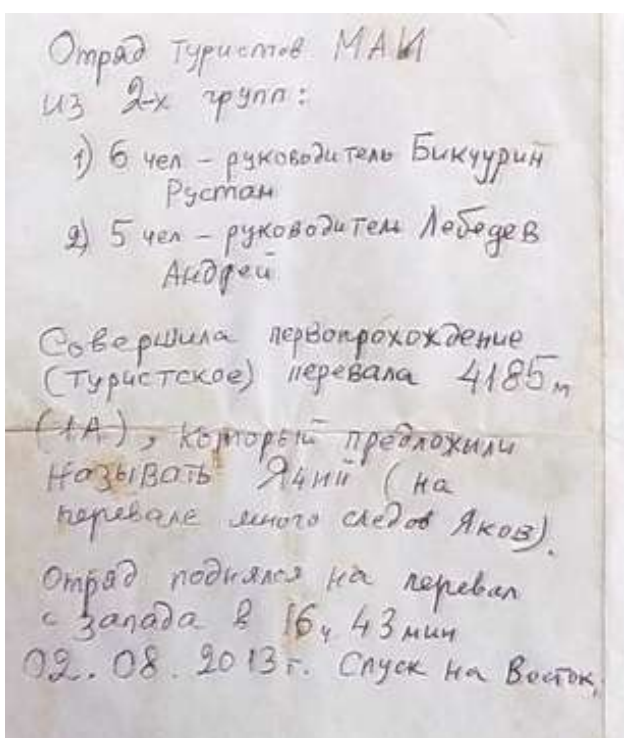 Отряд туристов МАИ
из 2-х групп:
1) 6 чел – руководитель Бикчурин
Рустан
2) 5 чел – руководитель Лебедев
Андрей
Совершила первопрохождение
(туристское) перевала 4185м
(1А), который предложили
называть Ячий (на
перевале много следов Яков).
Отряд поднялся на перевал
с запада в 16ч 43 мин
02.08.2013г. Спуск на Восток.